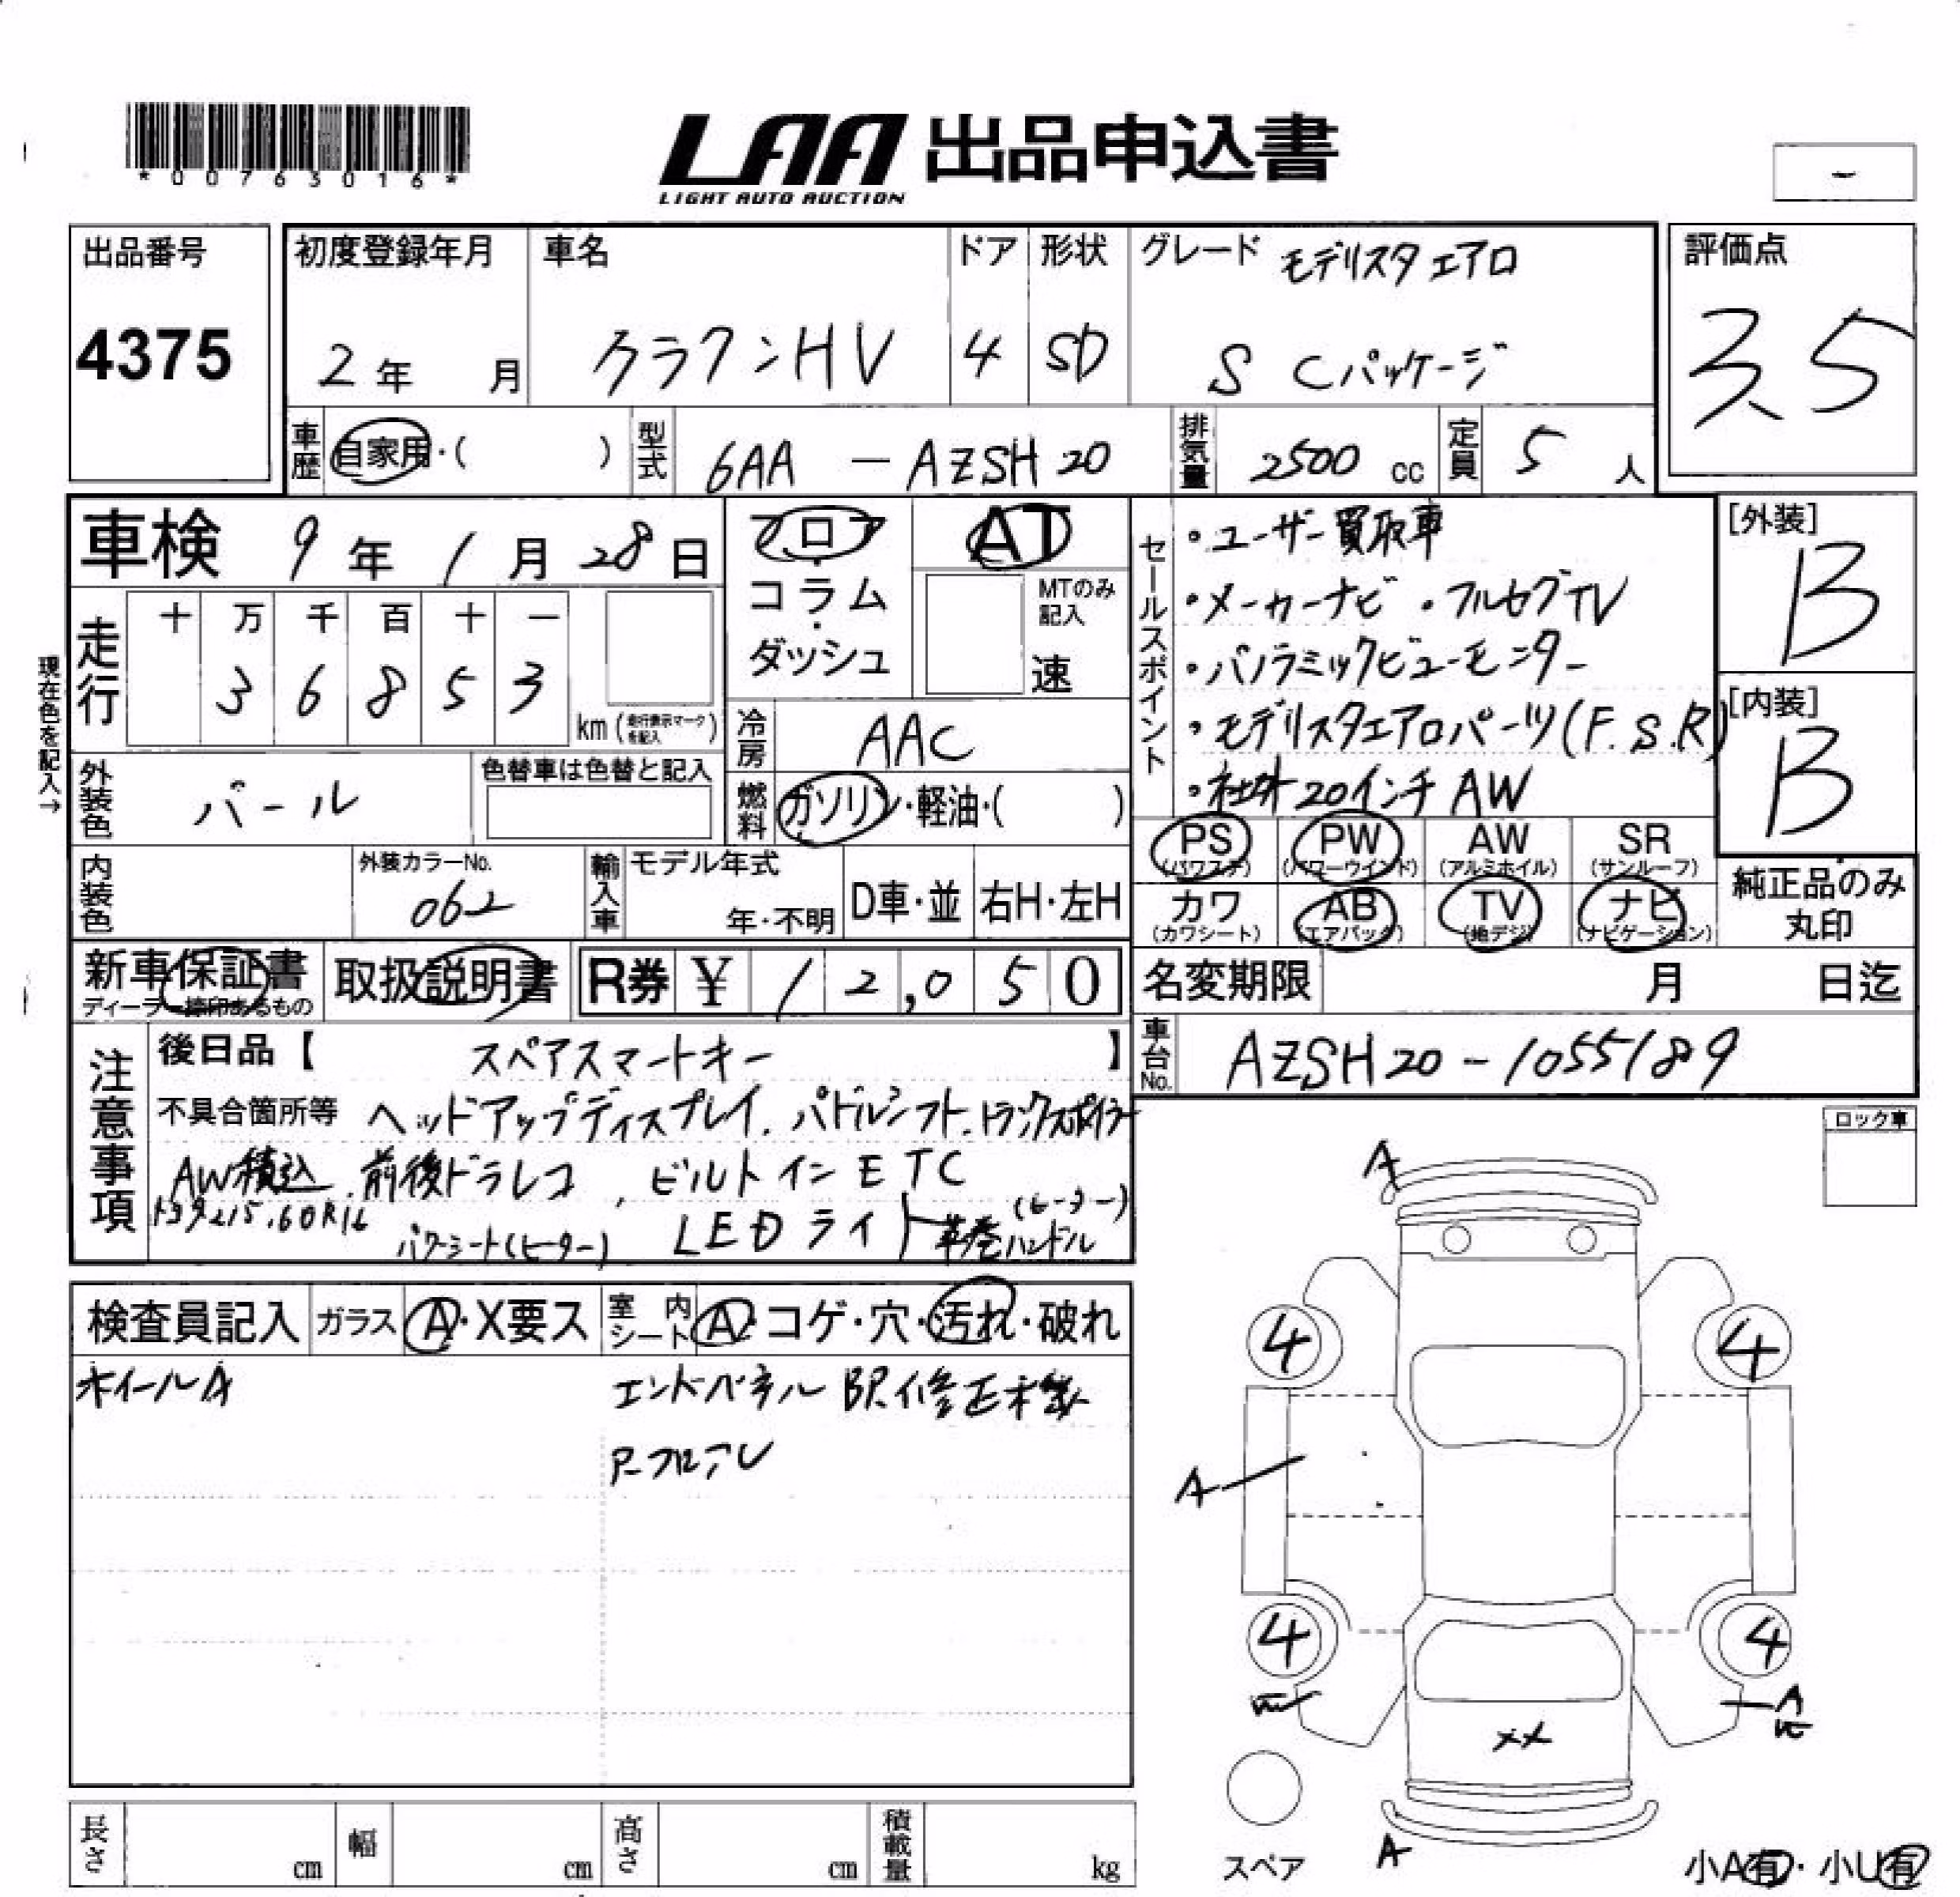 *00763016*
LAA 出品申込書
LIGHT AUTO AUCTION
-
出品番号
4375
初度登録年月
2年 月
車名
クラウンHV
ドア
4
形状
SD
グレード モデリスタエアロ
S Cパッケージ
評価点
3.5
車歴 自家用・( )
型式 6AA - AZSH20
排気量 2500 cc
定員 5 人
車検 9年 1月 28日
フロア・コラム・ダッシュ
AT
MTのみ記入
速
現在色を記入→
走行
十 万 千 百 十 一
3 6 8 5 3
km (走行表示マークを記入)
冷房 AAC
燃料 ガソリン・軽油・( )
外装色 パール
色替車は色替と記入
内装色
外装カラーNo.
062
輸入車 モデル年式
年・不明
D車・並 右H・左H
セールスポイント
・ユーザー買取車
・メーカーナビ ・フルセグTV
・パノラミックビューモニター
・モデリスタエアロパーツ(F.S.R)
・社外20インチAW
[外装]
B
[内装]
B
PS (パワステ) PW (パワーウインド) AW (アルミホイル) SR (サンルーフ)
カワ (カワシート) AB (エアバック) TV (地デジ) ナビ (ナビゲーション)
純正品のみ
丸印
新車保証書
ディーラー捺印あるもの
取扱説明書
R券 ¥ 12,050
名変期限 月 日迄
車台No. AZSH20-1055189
注意事項
後日品【 スペアスマートキー 】
不具合箇所等 ヘッドアップディスプレイ.パドルシフト.トランクスポイラー
AW積込.前後ドラレコ , ビルトインETC
トヨタ215.60R16 パワーシート(ヒーター) LEDライト 革巻ハンドル(ヒーター)
ロック車
検査員記入 ガラス A・X要ス 室内シート A・コゲ・穴・汚れ・破れ
ホイールA
エンドパネル
A
4 4
A
4 4
A
XX
A
スペア
小A有・小U有
長さ cm 幅 cm 高さ cm 積載量 kg